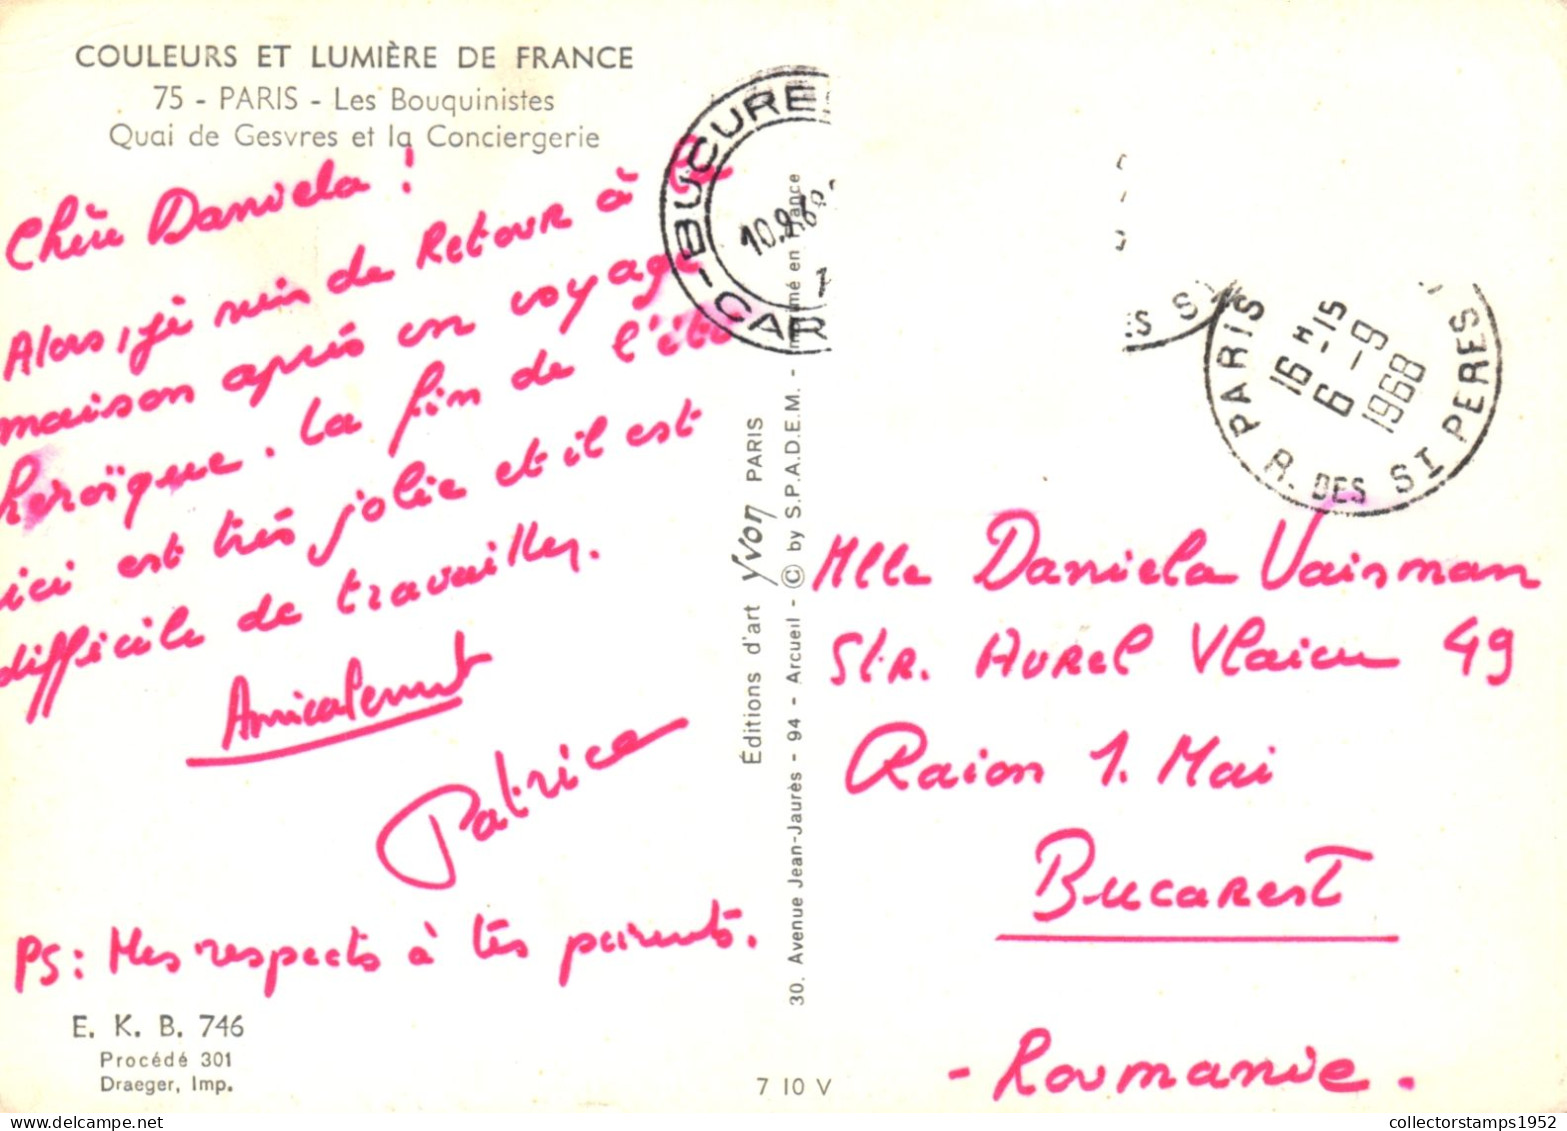 COULEURS ET LUMIÈRE DE FRANCE
75 - PARIS - Les Bouquinistes
Quai de Gesvres et la Conciergerie
Chère Daniela !
Alors, je suis de Retour à la
maison après un voyage
heroïque. La fin de l'été
ici est très jolie et il est
difficile de travailler.
Amicalement
Patrice
PS: Mes respects à tes parents.
E. K. B. 746
Procédé 301
Draeger, Imp.
Éditions d'art Yvon PARIS
30. Avenue Jean-Jaurès - 94 - Arcueil - © by S.P.A.D.E.M. - mé en France
7 10 V
BUCURE
10.9.68
CAR
PARIS
R. DES ST PERES
16 H - 15
6 - 9
1968
Mlle Daniela Vaisman
Str. Aurel Vlaicu 49
Raion 1. Mai
Bucarest
- Roumanie.
collectorstamps1952